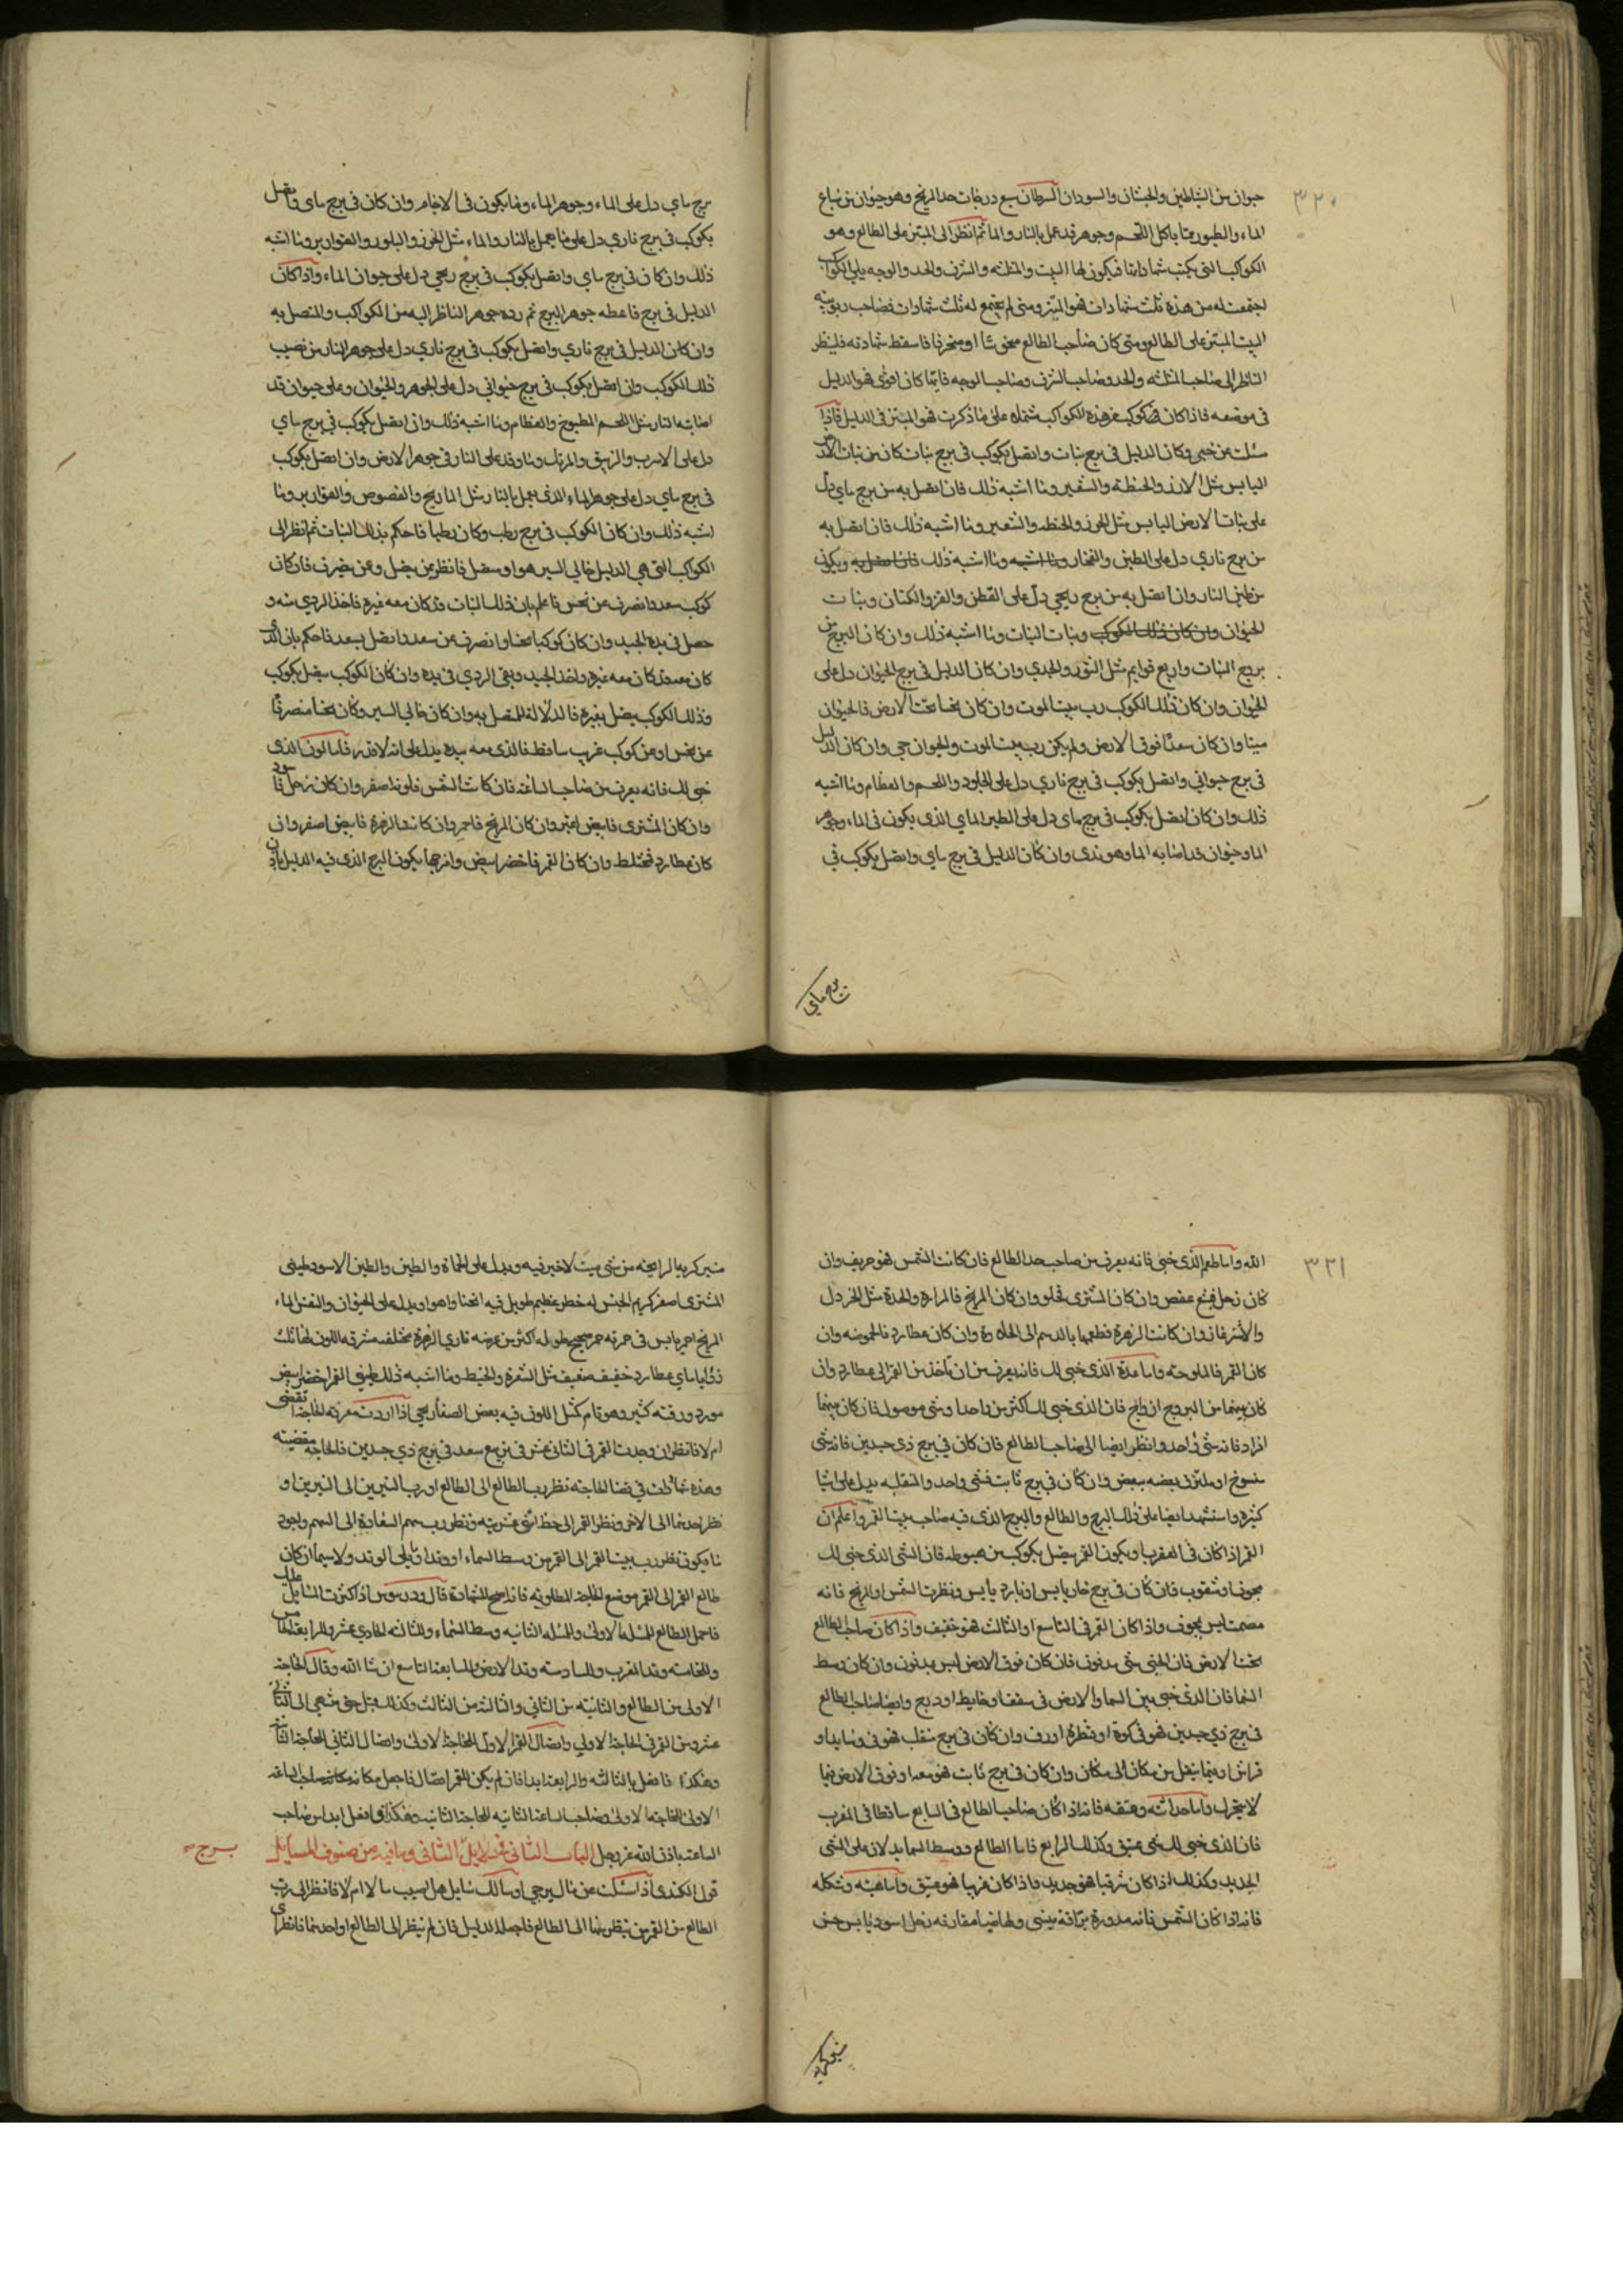 ٣٢٠
حيوان من الشياطين والحيتان والسودان السرطان سبع درجات حد المريخ وهو حيوان من سباع
الماء والطيور مما ياكل اللحم وجوهر قد عمل بالنار والماء ثم انظر الى المبتز على الطالع وهو
الكواكب التي يكتب شهاداتها فيكون لها البيت والمثلثه والشرف والحد والوجه
اجتمعت له من هذه ثلث شهادات فهو المبتز ومتى لم يجتمع له ثلث شهادات فصاحب
البيت المبتز على الطالع ومتى كان صاحب الطالع منحوسا او محترقا فاسقط شهادته فلينظر
الناظر الى صاحب المثلثه والحد وصاحب الشرف وصاحب الوجه فايها كان اقوى فهو الدليل
في موضعه فاذا كان كوكب من هذه الكواكب على ما ذكرت فهو المبتز في الدليل فاذا
سئلت عن خبي وكان الدليل في برج نبات واتصل بكوكب في برج نبات كان من نبات الارض
اليابس مثل الارز والحنطة والشعير وما اشبه ذلك فان اتصل به من برج ماي دل
على نبات الارض اليابس مثل الجزر والحنطه والشعير وما اشبه ذلك فان اتصل به
من برج ناري دل على الطين والفخار وما اشبه وما اشبه ذلك فان اتصل به ويكون
من طين النار وان اتصل به من برج ريحي دل على القطن والقز والكتان ونبات
الحيوان وان كان ذلك الكوكب ونبات النبات وما اشبه ذلك وان كان البرج من
بروج النبات واربع قوايم مثل الثور والجدي وان كان الدليل في برج الحيوان دل على
الحيوان وان كان ذلك الكوكب رب بيت الموت وان كان نحسا تحت الارض فالحيوان
ميتا وان كان سعدا فوق الارض ولم يكن رب بيت الموت والحيوان حي وان كان الدليل
في برج حيواني واتصل بكوكب في برج ناري دل على الجلود واللحم والعظام وما اشبه
ذلك وان كان اتصل بكوكب في برج ماى دل على الطير الماي الذى يكون في الماء وجوهر
الما وحيوان قد اصابه الما وهو ندى وان كان الدليل في برج ماي واتصل بكوكب في
برج ماي
برج ماي دل على الماء وجوهر الماء وما يكون في الاجام وان كان في برج ماى واتصل
بكوكب في برج ناري دل على ما يعمل بالنار والماء مثل الخرز والبلور والقوارير وما اشبه
ذلك وان كان في برج ماي واتصل بكوكب في برج ريحي دل على حيوان الماء واذا كان
الدليل في برج فاعطه جوهر البرج ثم رده جوهر الناظر اليه من الكواكب والمتصل به
وان كان الدليل في برج ناري واتصل بكوكب في برج ناري دل على جوهر النار من نصيب
ذلك الكوكب وان اتصل بكوكب في برج حيواني دل على الجوهر والحيوان وعلى حيوان قد
اصابته النار مثل اللحم المطبوخ والعظام وما اشبه ذلك وان اتصل بكوكب في برج ماي
دل على الاسرب والزيبق والمرتك وما وقد على النار في جوهر الارض وان اتصل بكوكب
في برج ماي دل على جوهر الماء الذى يعمل بالنار مثل والفصوص والقوارير وما
اشبه ذلك وان كان الكوكب في برج رطب وكان رطبا فاحكم بذلك النبات ثم انظر الى
الكواكب التي هي الدليل خالي السير هو او متصل فانظر بمن يتصل وعمن ينصرف فان كان
كوكب سعد وانصرف عن نحس فاعلم بان ذلك النبات قد كان معه غيره فاخذ الردي منه و
حصل في يده الجيد وان كان كوكبا نحسا وانصرف عن سعد واتصل بسعد فاحكم بان الذي
كان معه قد كان معه غيره واخذ الجيد وبقى الردي في يده وان كان الكوكب يتصل بكوكب
وذلك الكوكب يتصل بغيره فالدلالة للمتصل به وان كان خالي السير وكان نحسا منصرفا
عن نحس او عن كوكب غريب ساقط فالذى معه بيده يدل على انه لا قدر فاما لون الذى
خبي لك فانه يعرف من صاحب الساعة فان كانت الشمس فلونه اصفر وان كان زحل فاسود
وان كان المشترى فابيض اغبر وان كان المريخ فاحمر وان كانت الزهرة فابيض اصفر وان
كان عطارد فمختلط وان كان القمر فاخضر ابيض وامزجها بكون البرج الذى فيه الدليل باذن
٣٢١
الله واما طعم الذى خبي فانه يعرف من صاحب حد الطالع فان كانت الشمس فهو حريف وان
كان زحل فبشع عفص وان كان المشترى فحلو وان كان المريخ فالمرارة والحدة مثل الخردل
وان كانت الزهرة فطعمها بالدسم الى الحلاوة وان كان عطارد فالحموضه وان
كان القمر فالملوحة واما عدة الذى خبي لك فانه يعرف من ان تاخذ من القمر الى عطارد وان
كان بينهما من البروج ازواج فان الذى خبي لك اكثر من واحد او شي موصول فان كان بينهما
افراد فانه شى واحد وانظر ايضا الى صاحب الطالع فان كان في برج ذي جسدين فانه شى
منسوخ او ملتزق بعضه ببعض وان كان في برج ثابت فشى واحد والمنقلبه يدل على اشيا
كثيرة واستشهد ايضا على ذلك البرج والطالع والبرج الذى فيه صاحب بيت القمر واعلم ان
القمر اذا كان في العقرب او يكون القمر يتصل بكوكب من هبوطه فان الشى الذى خبي لك
مجوف او مثقوب فان كان في برج حار يابس او بارد يابس ونظرت الشمس او المريخ فانه
مصمت ليس بمجوف واذا كان القمر في التاسع او الثالث فهو خفيف واذا كان صاحب الطالع
تحت الارض فان الخبي شى مدفون فان كان فوق الارض ليس مدفون وان كان وسط
السما فان الذى خبي بين السما والارض في سقف او حايط او درج وايضا صاحب الطالع
في برج ذي جسدين فهو في كوة او قنطرة او رف وان كان في برج منقلب فهو في وساده او
فراش او فيما ينقل من مكان الى مكان وان كان في برج ثابت فهو معه او فوق الارض فيما
لا يتحرك واما حداثته وعتقه فانه اذا كان صاحب الطالع في السابع ساقطا في المغرب
فان الذى خبي لك شى عتيق وكذلك الرابع فاما الطالع ووسط السما يدلان على الشي
الجديد وكذلك اذا كان شرقيا فهو جديد فاذا كان غربيا فهو عتيق واما هيئته وشكله
فانه اذا كان الشمس فانه مدورة براقة يضى ولها ضيا مقارنه زحل اسود يابس خشن
منتن كريه الرايحه من شى ميت لا خير فيه ويدل على الحماة والطين والطين الاسود طيني
المشترى اصفر كريم الجنس له خطر عظيم طويل فيه انحنا واهوا ويدل على الحيوان الماء
المريخ احمر يابس في حمرته طوله اكثر من عرضه ناري الزهرة مختلفه مشرقه اللون
عطارد خفيف ضعيف مثل الشعرة والخيط وما اشبه ذلك طيني القمر اخضر ابيض
مورد ورقته كثير وهو تام اللون فيه بعض الصفار يحي اذا اردت معرفه الحاجة تقضى
ام لا فانظر ان وجدت القمر في الثاني عشر في تربيع سعد في برج ذي جسدين فالحاجة مقضيته
وهذه في قضا الحاجته نظر رب الطالع الى الطالع او رب النيرين الى النيرين او
نظر احدهما الى الاخر ونظر القمر الى حظ اثنى عشريته ونظر رب سهم السعادة الى السهم واجود
ما يكون نظر رب بيت القمر الى القمر من وسط السماء او وتد او يلى الوتد ولا سيما ان كان
طالع القمر الى القمر موضع الحاجة المطلوبه فانه اصح للشهادة قال اذا كثرت المسايل عليك
فاجعل الطالع للمسئلة الاولى والمسئله الثانيه وسط السماء والثالثه الحادي عشر والرابعة الخامس
والخامسه وتد الغرب والسادسه وتد الارض والسابعة التاسع ان شا الله وقال الحاجة
الاولى من الطالع والثانيه من الثاني والثالثة من الثالث وكذلك حتى ينتهي الى الثاني
عشر ومن القمر في الحاجة الاولي واتصال القمر الاول للحاجة الاولى واتصال الثاني للحاجة الثانية
وهكذا فافعل بالثالثه والرابعة ابدا فان لم يكن للقمر اتصال فاجعل مكانه مكانه صاحب الساعه
الاولى للحاجة الاولى وصاحب الساعة الثانيه للحاجة الثانيه وهكذا فافعل ابدا من صاحب
الساعة باذن الله عز وجل الباب الثاني في دلايل الثاني وما فيه من صنوف المسايل
قول الكندي اذا سئلت عن مال يرجي او سالك سايل هل اصيب مالا ام لا فانظر الى رب
الطالع من القمر من ينظر منهما الى الطالع فاجعله الدليل فان لم ينظر الى الطالع او احدهما فانظر